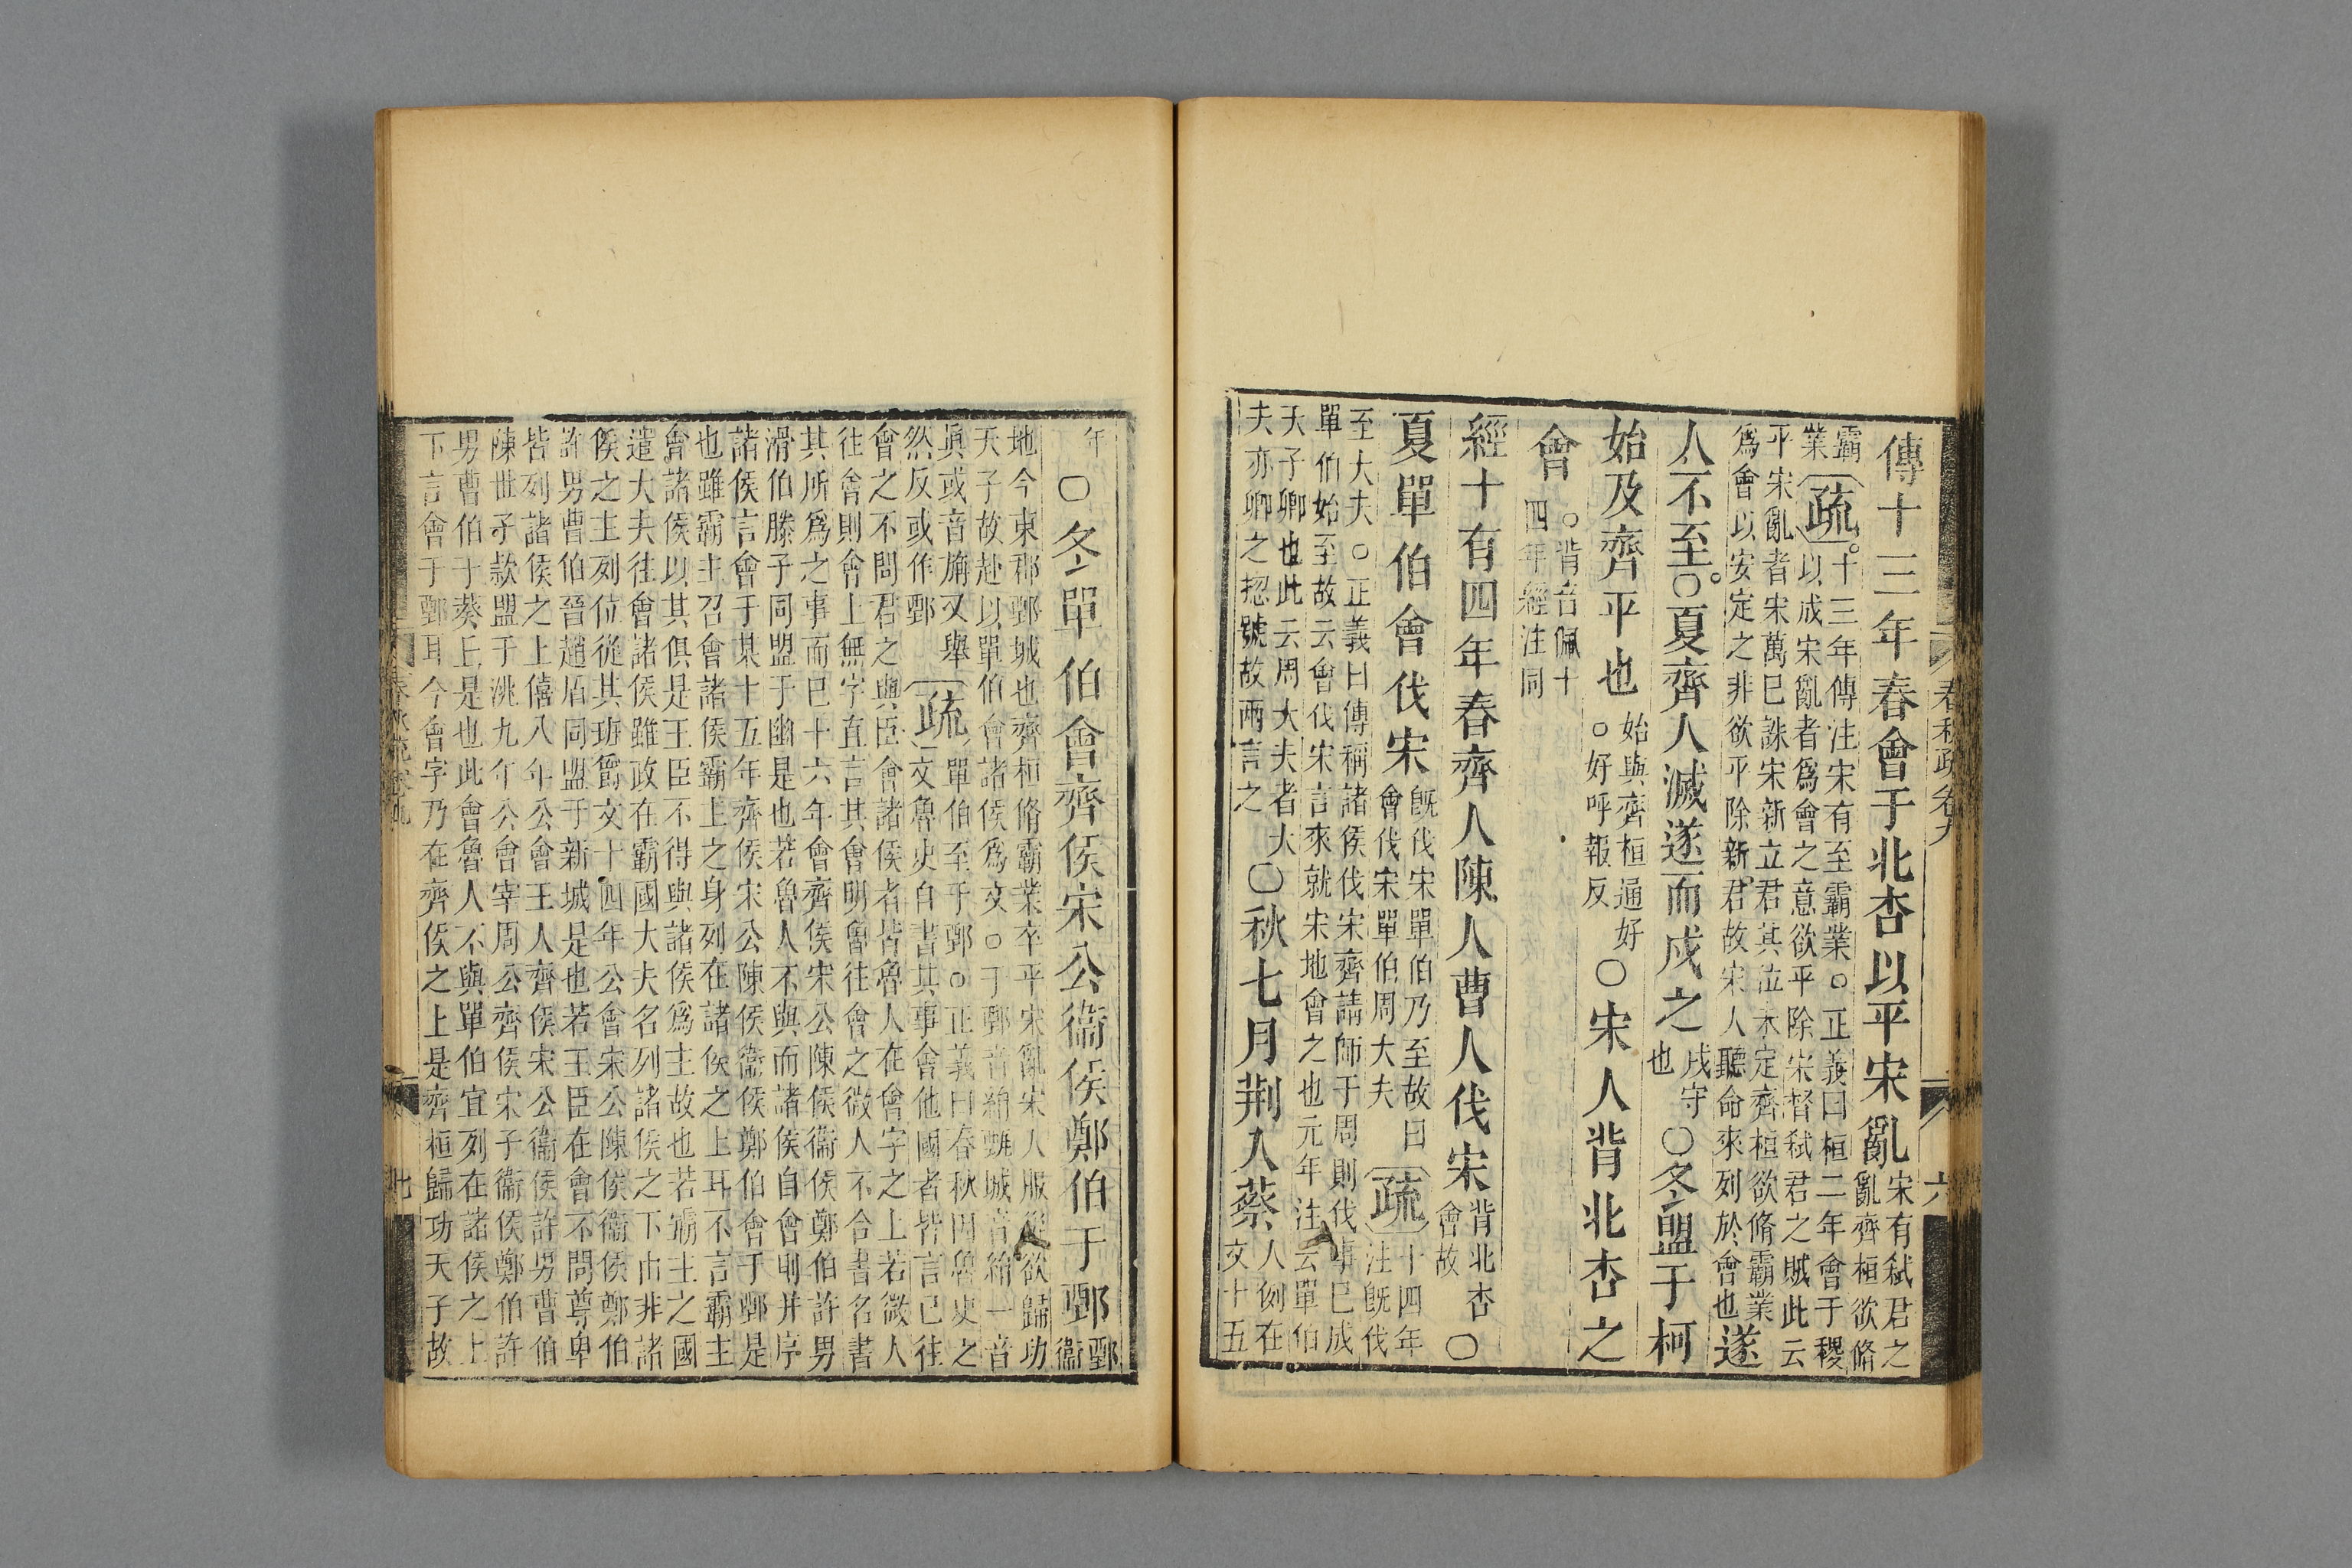 傳十三年春會于北杏以平宋亂宋有弑君之
亂齊桓欲脩
霸
業疏十三年傳注宋有至霸業○正義曰桓二年會于稷
以成宋亂者爲會之意欲平除宋督弑君之賊此云
平宋亂者宋萬巳誅宋新立君其位未定齊桓欲脩霸業
爲會以安定之非欲平除新君故宋人聽命來列於會也遂
人不至○夏齊人滅遂而戍之戍守
也○冬盟于柯
始及齊平也始與齊桓通好
○好呼報反○宋人背北杏之
會○背音佩十
四年經注同
經十有四年春齊人陳人曹人伐宋背北杏
會故○
夏單伯會伐宋既伐宋單伯乃至故曰
會伐宋單伯周大夫疏十四年
注既伐
至大夫○正義曰傳稱諸侯伐宋齊請師于周則伐事巳成
單伯始至故云會伐宋言來就宋地會之也元年注云單伯
天子卿也此云周大夫者大
夫亦卿之揔號故兩言之○秋七月荆入蔡入例在
文十五
年
○冬單伯會齊侯宋公衞侯鄭伯于鄄鄄
衞
地今東郡鄄城也齊桓脩霸業卒平宋亂宋人服從欲歸功
天子故赴以單伯會諸侯爲文○于鄄音絹甄城音絹一音
眞或音旃又舉
然反或作鄄疏單伯至于鄄○正義曰春秋因魯史之
文魯史自書其事會他國者皆言巳往
會之不問君之與臣會諸侯者皆魯人在會字之上若微人
往會則會上無字直言其會明魯往會之微人不合書名書
其所爲之事而巳十六年會齊侯宋公陳侯衞侯鄭伯許男
滑伯滕子同盟于幽是也若魯人不與而諸侯自會則并序
諸侯言會于某十五年齊侯宋公陳侯衞侯鄭伯會于鄄是
也雖霸主召會諸侯霸主之身列在諸侯之上耳不言霸主
會諸侯以其俱是王臣不得與諸侯爲主故也若霸主之國
遣大夫往會諸侯雖政在霸國大夫名列諸侯之下由非諸
侯之主列位從其班爵文十四年公會宋公陳侯衞侯鄭伯
許男曹伯晉趙盾同盟于新城是也若王臣在會不問尊卑
皆列諸侯之上僖八年公會王人齊侯宋公衞侯許男曹伯
陳世子款盟于洮九年公會宰周公齊侯宋子衞侯鄭伯許
男曹伯于葵丘是也此會魯人不與單伯宜列在諸侯之上
下言會于鄄耳今會字乃在齊侯之上是齊桓歸功天子故
春秋疏卷九
六